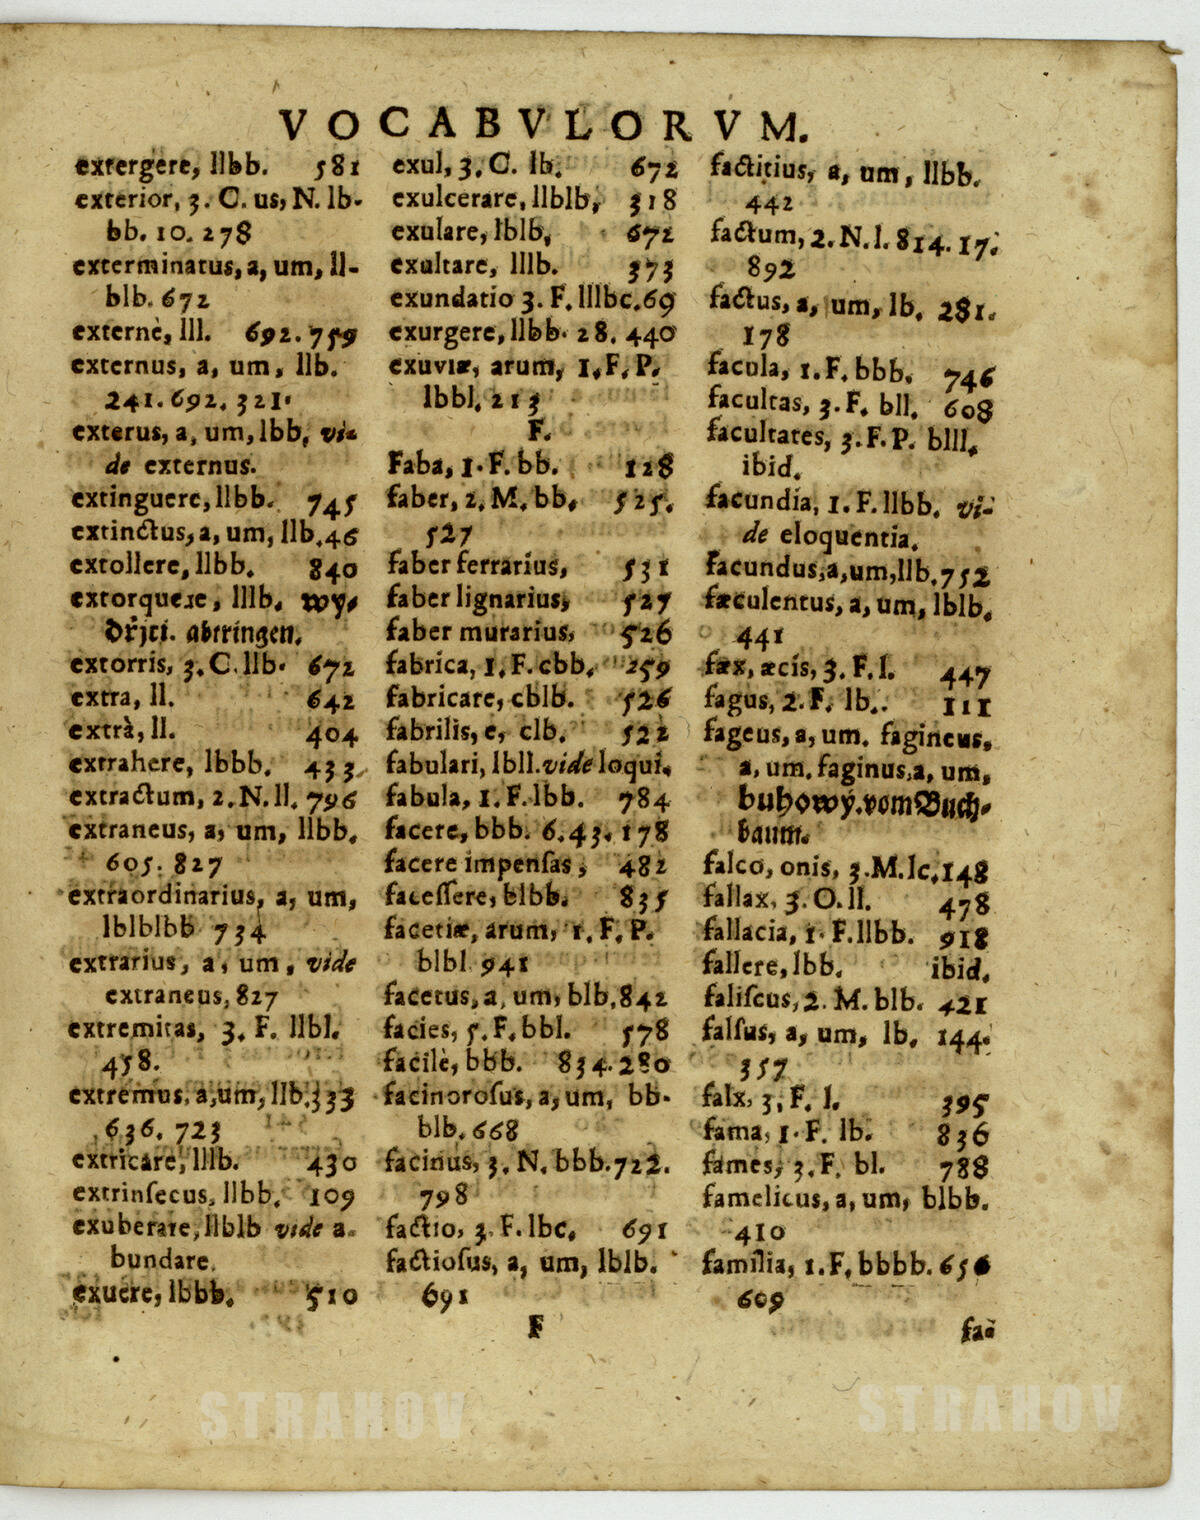 VOCABVLORVM.
extergere, llbb. 581
exterior, 3. C. us, N. lb-
bb. 10. 278
exterminatus, a, um, ll-
blb. 672
externè, lll. 692. 759
externus, a, um, llb.
241. 692. 321.
exterus, a, um, lbb, vi-
de externus.
extinguere, llbb. 745
extinctus, a, um, llb. 46
extollere, llbb. 840
extorquere, lllb. wy-
dřjti. abtringen.
extorris, 3. C. llb. 672
extra, ll. 642
extrà, ll. 404
extrahere, lbbb. 433
extractum, 2. N. ll. 796
extraneus, a, um, llbb.
605. 827
extraordinarius, a, um,
lblblbb 734
extrarius, a, um, vide
extraneus, 827
extremitas, 3. F. llbl.
458.
extremus, a, um, llb. 333
636. 723
extricare, lllb. 430
extrinſecus, llbb. 109
exuberare, llblb vide a-
bundare.
exuere, lbbb. 510
exul, 3. C. lb. 672
exulcerare, llblb, 318
exulare, lblb, 672
exultare, lllb. 373
exundatio 3. F. lllbc. 69
exurgere, llbb. 28. 440
exuviæ, arum, 1. F. P.
lbbl. 213
F.
Faba, 1. F. bb. 128
faber, 2. M. bb. 525.
527
faber ferrarius, 531
faber lignarius, 527
faber murarius, 526
fabrica, 1. F. cbb. 259
fabricare, cblb. 526
fabrilis, e, clb. 522
fabulari, lbll. vide loqui.
fabula, 1. F. lbb. 784
facere, bbb. 6. 43. 178
facere impenſas, 482
faceſſere, blbb. 835
facetiæ, arum, 1. F. P.
blbl 941
facetus, a, um, blb. 842
facies, 5. F. bbl. 578
facilè, bbb. 834. 280
facinoroſus, a, um, bb-
blb. 668
facinus, 3. N. bbb. 722.
798
factio, 3. F. lbc. 691
factioſus, a, um, lblb.
691
F
factitius, a, um, llbb.
442
factum, 2. N. l. 814. 17.
892
factus, a, um, lb. 281.
178
facula, 1. F. bbb. 746
facultas, 3. F. bll. 608
facultates, 3. F. P. blll.
ibid.
facundia, 1. F. llbb. vi-
de eloquentia.
facundus, a, um, llb. 752
fæculentus, a, um, lblb.
441
fæx, æcis, 3. F. l. 447
fagus, 2. F. lb. 111
fageus, a, um. fagineus,
a, um. faginus, a, um,
buhowý. vom Buch-
baum.
falco, onis, 3. M. lc. 148
fallax, 3. O. ll. 478
fallacia, 1. F. llbb. 918
fallere, lbb. ibid.
faliſcus, 2. M. blb. 421
falſus, a, um, lb. 144.
357
falx, 3. F. l. 395
fama, 1. F. lb. 836
fames, 3. F. bl. 788
famelicus, a, um, blbb.
410
familia, 1. F. bbbb.
609
fa-
STRAHOV STRAHOV